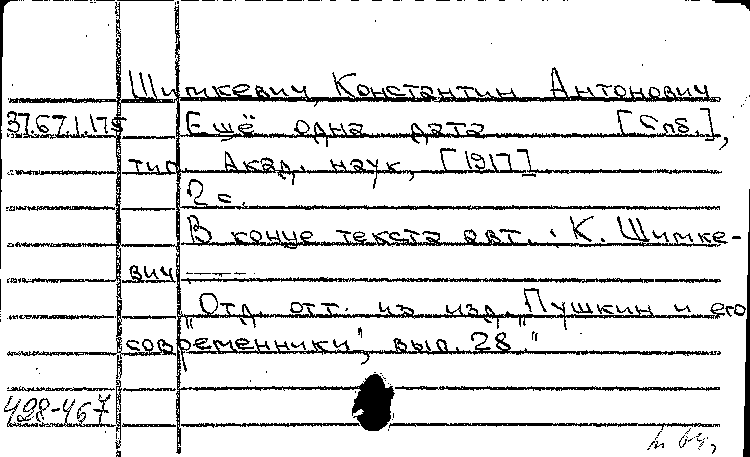 Шимкевич, Константин Антонович
37.67.1.175 Ещё одна дата [Спб.],
тип. Акад. наук, [1917]
2 с.
В конце текста авт.: К. Шимке-
вич
"Отд. отт. из изд. "Пушкин и его
современники", вып. 28."
428-467